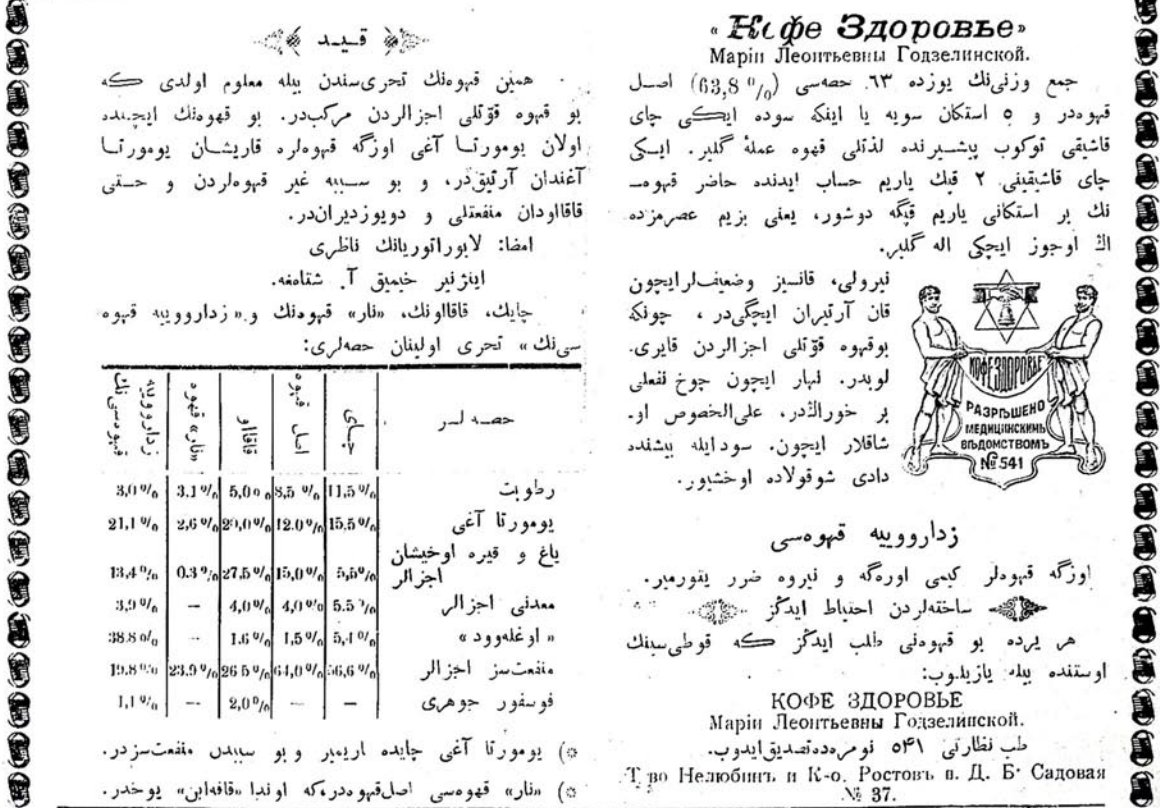 « Кофе Здоровье»
Маріи Леонтьевны Годзелинской.
جمع وزنی‌نك یوزده ٦٣ حصه‌سی (63,8 %) اصل
قهوه‌در و ٥ استکان سویه یا اینکه سوده ایکی چای
قاشیقی توکوب پیشیرنده لذتلی قهوه عملهٔ گلیر. ایکی
چای قاشیقینی ٢ قپك یاریم حساب ایدنده حاضر قهوه‌ـ
نك بر استکانی یاریم قپگه دوشور، یعنی بزیم عصرمزده
اڭ اوجوز ایچکی اله گلیر.
نیرولی، قانسیز وضعیف‌لر ایچون
قان آرتیران ایچگی‌در ، چونکه
بوقهوه قوّتلی اجزالردن قایری‌ـ
لوبدر. نهار ایچون چوخ نفعلی
بر خوراڭدر، علی‌الخصوص او‌ـ
شاقلار ایچون. سودایله پیشنده
دادی شوقولاده اوخشیور.
КОФЕ ЗДОРОВЬЕ
РАЗРѢШЕНО
МЕДИЦИНСКИМЪ
ВѢДОМСТВОМЪ
№ 541
زدارووییه قهوه‌سی
اوزگه قهوه‌لر کیمی اورەگه و نیروه ضرر یتورمیر.
ساخته‌لردن احتیاط ایدڭز
هر یرده بو قهوه‌نی طلب ایدڭز که قوطی‌سینك
اوستنده بیله یازیلوب:
КОФЕ ЗДОРОВЬЕ
Маріи Леонтьевны Годзелинской.
طب نظارتی ٥۴١ نومره‌ده تصدیق ایدوب.
Т-во Нелюбинъ и К-о. Ростовъ н. Д. Б. Садовая
№ 37.
قید
همین قهوه‌نك تحری‌سندن بیله معلوم اولدی که
بو قهوه قوّتلی اجزالردن مرکب‌در. بو قهوه‌نك ایچنده
اولان یومورتا آغی اوزگه قهوه‌لره قاریشان یومورتا
آغندان آرتیق‌در، و بو سببه غیر قهوه‌لردن و حتی
قاقااودان منفعتلی و دویوزدیران‌در.
امضا: لابوراتوریانك ناظری
اینژنیر خیمیق آ. شتامغه.
چایك، قاقااونك، «نار» قهوه‌نك و «زدارووییه قهوه
سی‌نك» تحری اولینان حصه‌لری:
حصه لر | چای | اصل قهوه | قاقااو | «نار» قهوه | زدارووییه قهوه‌سی‌نك
رطوبت 11,5 % 8,5 % 5,0 % 3.1 % 3,0 %
یومورتا آغی 15.5 % 12.0 % 20,0 % 2,6 % 21,1 %
یاغ و قیره اوخیشان
اجزالر 5,5% 15,0 % 27,5 % 0.3 % 13,4 %
معدنی اجزالر 5.5 % 4,0 % 4,0 % — 3,9 %
« اوغله‌وود » 5,4 % 1,5 % 1.6 % — 38.8 %
منفعت‌سز اجزالر 56,6 % 64,0 % 26 5 % 23.9 % 19.8 %
فوسفور جوهری — — 2,0 % — 1,1 %
*) یومورتا آغی چایده اریمیر و بو سببدن منفعت‌سزدر.
*) «نار» قهوه‌سی اصل قهوه‌در، که اوندا «قافه‌این» یوخدر.